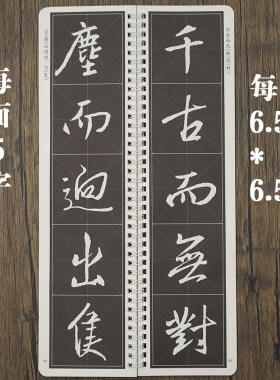 每面5字
塵而迥出隻
千古而無對
每
6.5
*
6.5